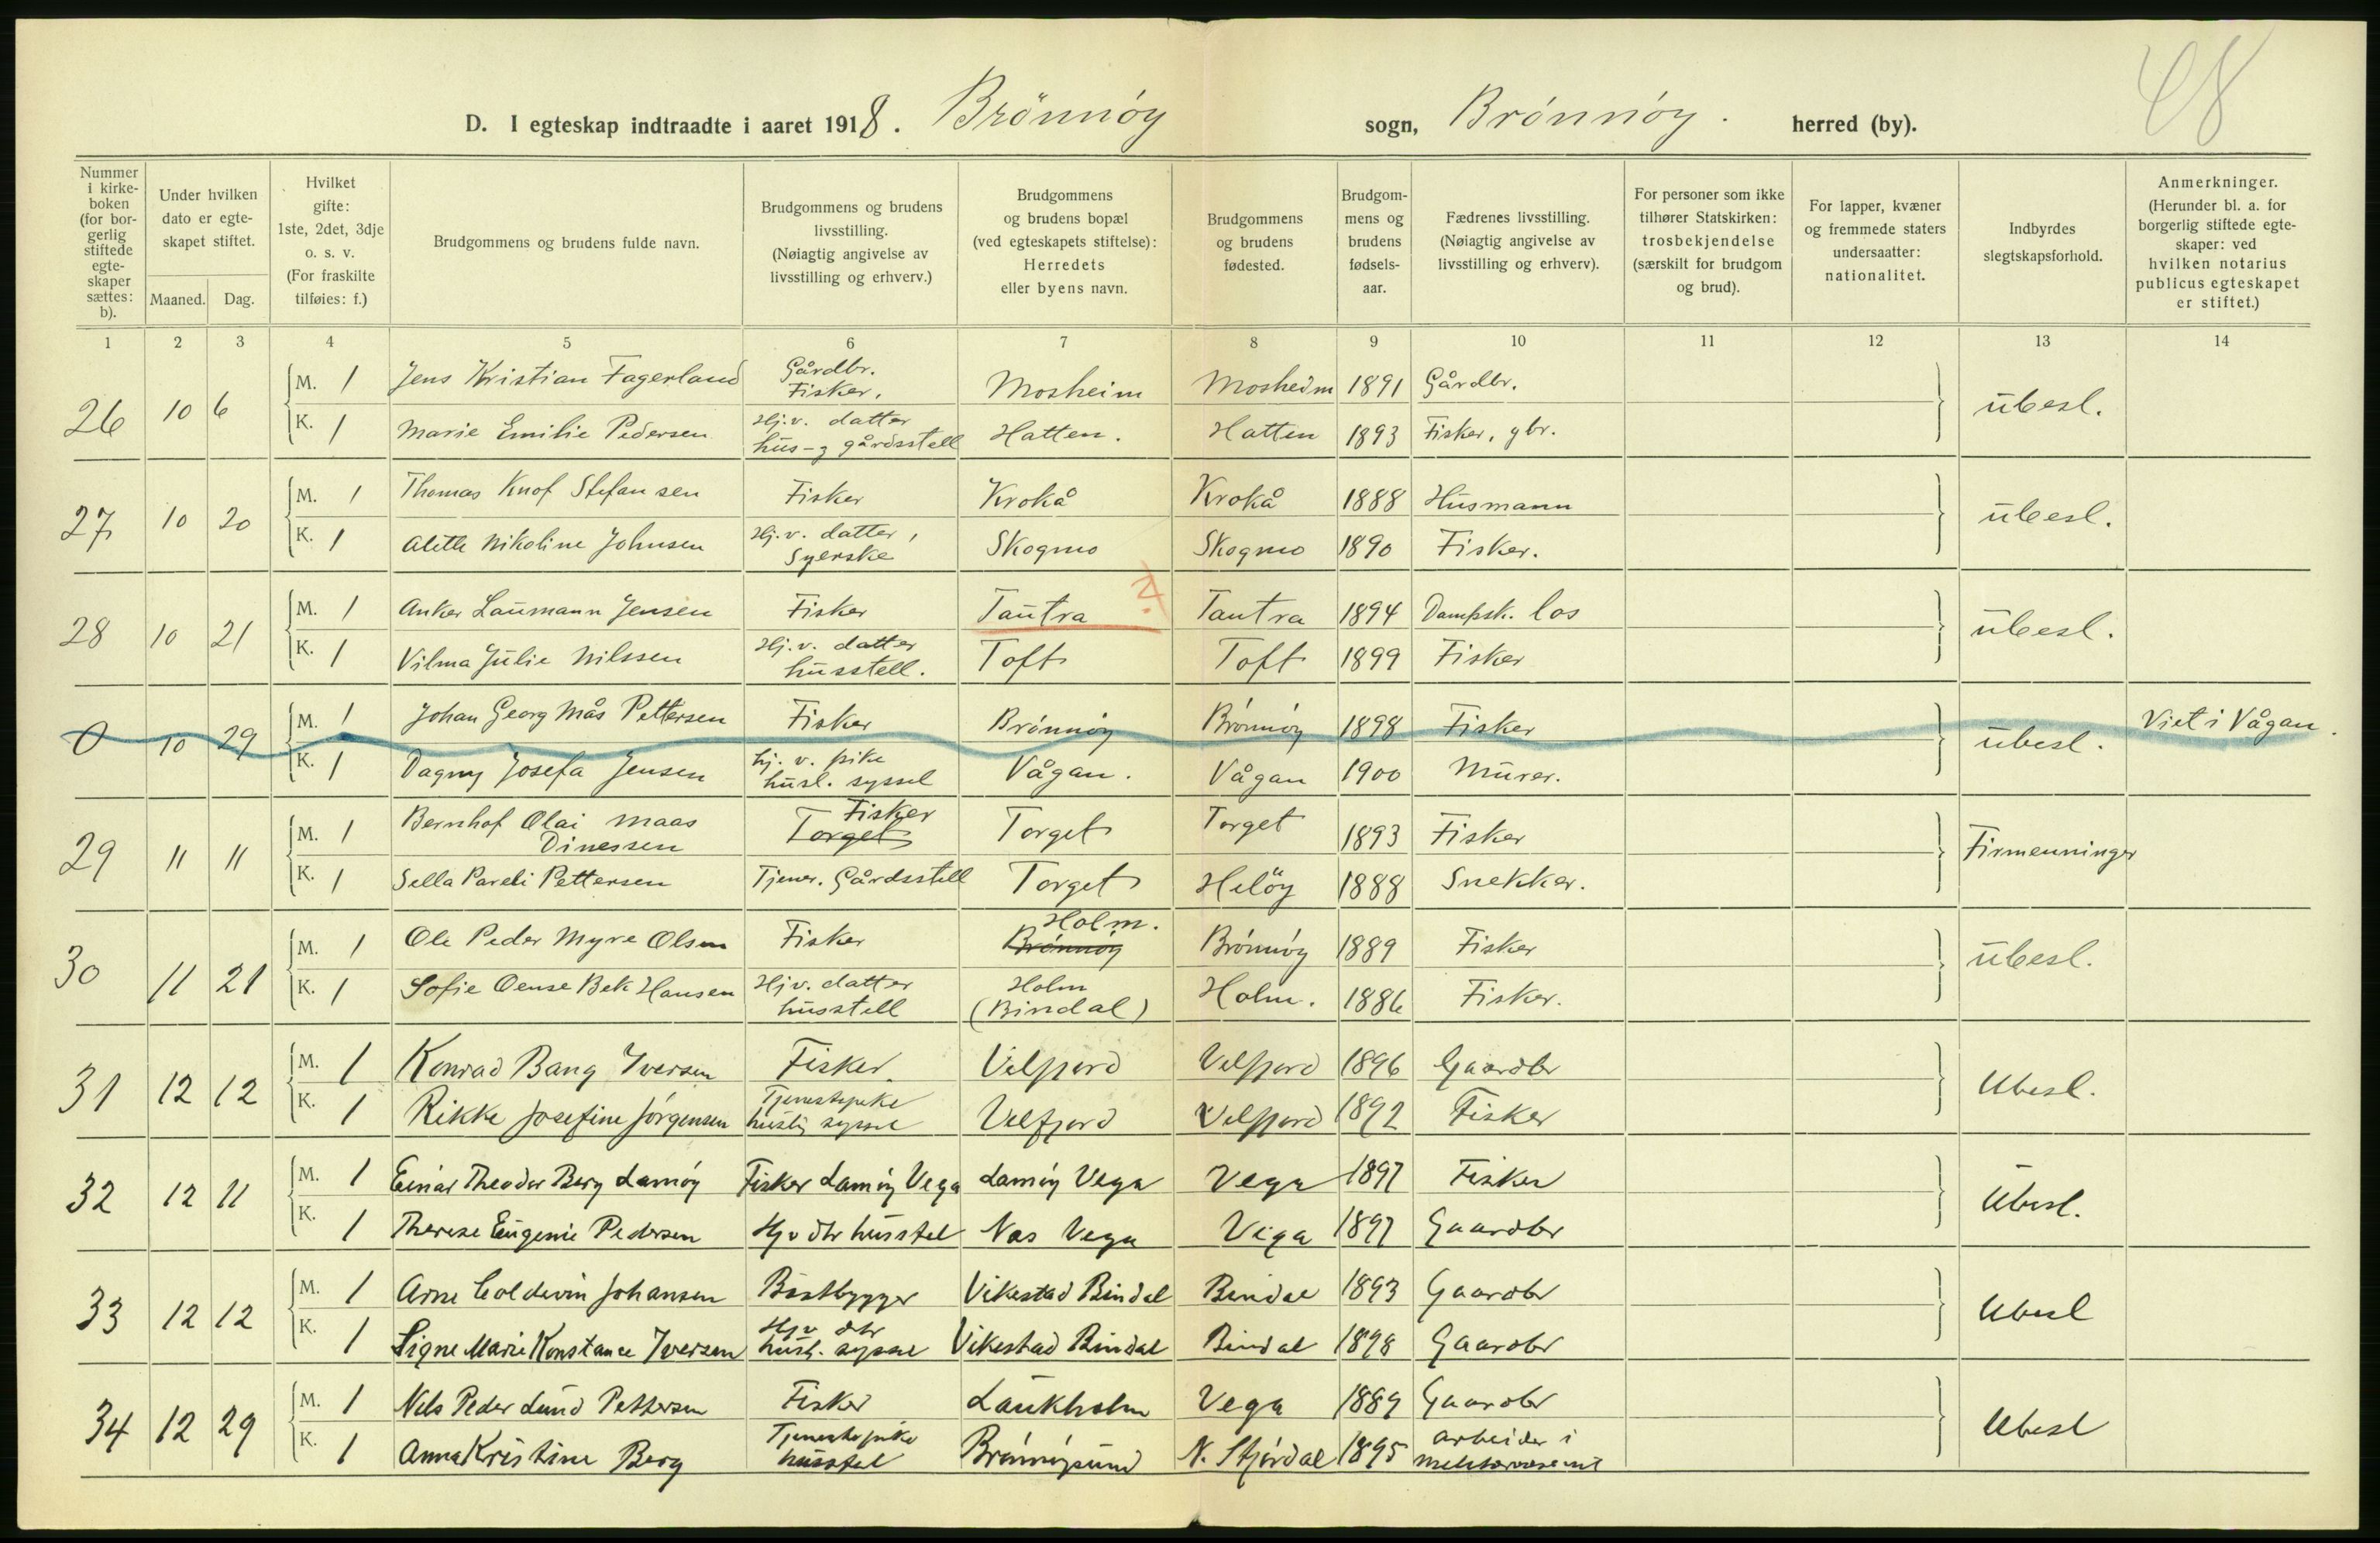 48
D. I egteskap indtraadte i aaret 1918. Brönnöy sogn, Brónnóy. herred (by).
Nummer i kirke-boken (for bor-gerlig stiftede egte-skaper sættes: b).
Under hvilken dato er egte-skapet stiftet.
Maaned. Dag.
Hvilket gifte: 1ste, 2det, 3dje o. s. v. (For fraskilte tilføies: f.)
Brudgommens og brudens fulde navn.
Brudgommens og brudens livsstilling. (Nøiagtig angivelse av livsstilling og erhverv.)
Brudgommens og brudens bopæl (ved egteskapets stiftelse): Herredets eller byens navn.
Brudgommens og brudens fødested.
Brudgom-mens og brudens fødsels-aar.
Fædrenes livsstilling. (Nøiagtig angivelse av livsstilling og erhverv).
For personer som ikke tilhører Statskirken: trosbekjendelse (særskilt for brudgom og brud).
For lapper, kvæner og fremmede staters undersaatter: nationalitet.
Indbyrdes slegtskapsforhold.
Anmerkninger. (Herunder bl. a. for borgerlig stiftede egte-skaper: ved hvilken notarius publicus egteskapet er stiftet.)
1 2 3 4 5 6 7 8 9 10 11 12 13 14
26 10 6 M. 1 Jens Kristian Fagerland Gårdbr. Fisker. Mosheim Mosheim 1891 Gårdbr. übesl.
K. 1 Marie Emilie Pedersen Hj.v. datter hus-g gårdsstell Hatten. Hatten 1893 Fisker, gbr.
27 10 20 M. 1 Thomas Knof Stefansen Fisker Krokå Krokå 1888 Husmann übesl.
K. 1 Alette Nikoline Johnsen Hj.v. datter, Syerske Skogmo Skogmo 1890 Fisker.
28 10 21 M. 1 Anker Laumann Jensen Fisker Tautra ?. Tautra 1894 Dampsk. los übesl.
K. 1 Vilma Julie Nilssen Hj.v. datter husstell. Toft Toft 1899 Fisker
0 10 29 M. 1 Johan Georg Mås Pettersen Fisker Brónnöy Brónnöy 1898 Fisker übesl. Viet i Vågan.
K. 1 Dagny Josefa Jensen hj. v. pike husl. syssel Vågan. Vågan 1900 Murer.
29 11 11 M. 1 Bernhof Olai Maas Dinessen Fisker Torget Torget Torget 1893 Fisker Firmenninger
K. 1 Sella Pareli Pettersen Tjener. Gårdsstell Torget Helöy 1888 Snekker.
30 11 21 M. 1 Ole Peder Myre Olsen Fisker Holm. Brónnóy Brónnóy 1889 Fisker übesl.
K. 1 Sofie Oense Bek Hansen Hjv. datter husstell Holm (Bindal) Holm. 1886 Fisker.
31 12 12 M. 1 Konrad Bang Iversen Fisker. Velfjord Velfjord 1896 Gaardbr Ubesl.
K. 1 Rikke Josefine Jórgensen Tjenestepike huslig syssel Velfjord Velfjord 1892 Fisker
32 12 11 M. 1 Einar Theodor Berg Lamóy Fisker Lamóy Vega Lamóy Vega Vega 1897 Fisker Ubesl.
K. 1 Therese Eugenie Pedersen Hjv dtr husstel Nes Vega Vega 1897 Gaardbr
33 12 12 M. 1 Arne Coldevin Johansen Baatbygger Vikestad Bindal Bindal 1893 Gaardbr Ubesl
K. 1 Signe Marie Konstance Iversen Hjv dtr husl. syssel Vikestad Bindal Bindal 1898 Gaardbr
34 12 29 M. 1 Nils Peder Lund Pettersen Fisker Laukholm Vega 1889 Gaardbr Ubesl
K. 1 Anna Kristine Berg Tjenestepike husstel Brónnóysund N. Stjórdal 1895 arbeider i